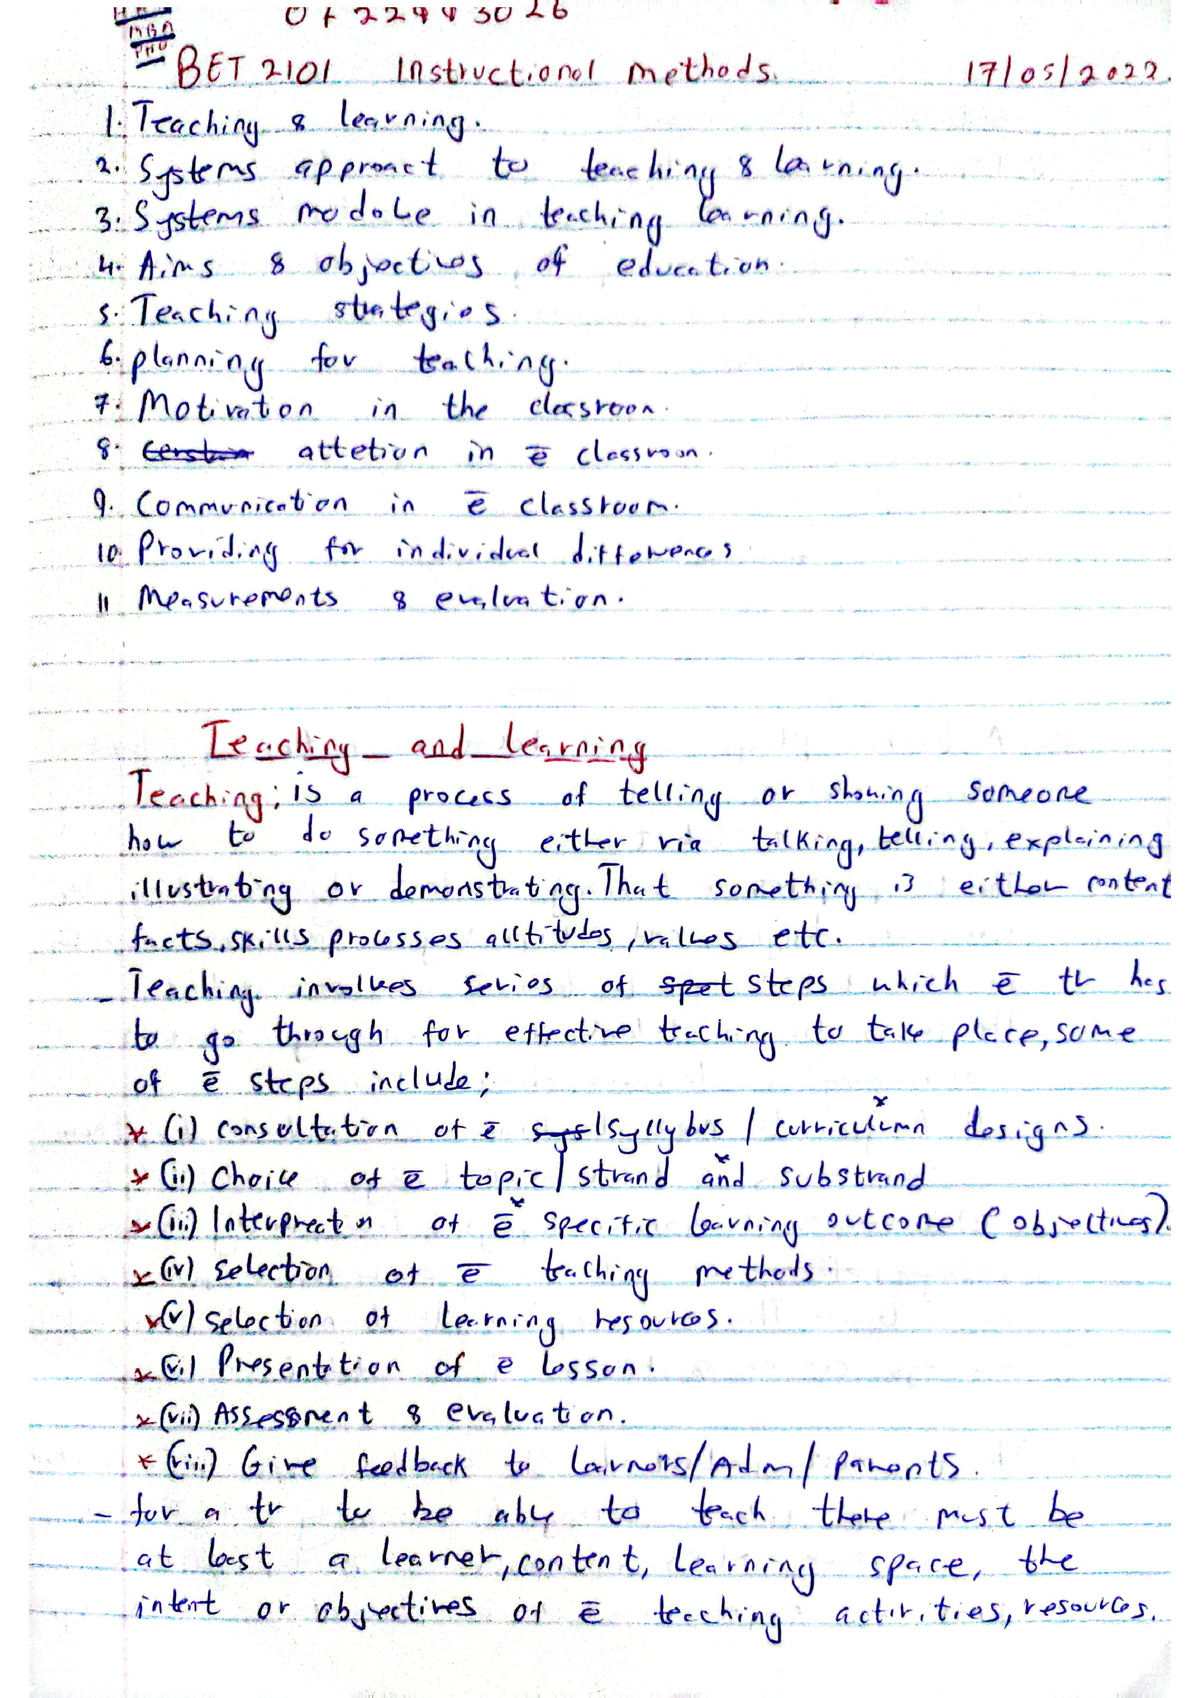 MBA
PHD
BET 2101 Instructional methods. 17/05/2022.
1. Teaching & learning.
2. Systems approact to teaching & learning.
3. Systems modole in teaching learning.
4. Aims & objectives of education.
5. Teaching strategies.
6. planning for teaching.
7. Motivation in the classroon.
8. attetion in ē classroon.
9. Communication in ē classroom.
10. Providing for individual differences
11 Measurements & evaluation.
Teaching and learning
Teaching; is a process of telling or showing someone
how to do something either via talking, telling, explaining
illustrating or demonstrating. That something is either content
facts, skills processes attitudes, values etc.
- Teaching involves series of steps which ē tr has
to go through for effective teaching to take place, some
of ē steps include;
* (i) consultation of ē syllybus / curriculumn designs.
* (ii) Choice of ē topic / strand and substrand
* (iii) Interpreton of ē specific learning outcome (objectives).
* (iv) selection of ē teaching methods.
* (v) selection of learning resources.
* (vi) Presentation of ē lesson.
* (vii) Assessment & evaluation.
* (viii) Give feedback to learners/Adm/ parents.
- for a tr to be able to teach there must be
at least a learner, content, learning space, the
intent or objectives of ē teaching activities, resources.